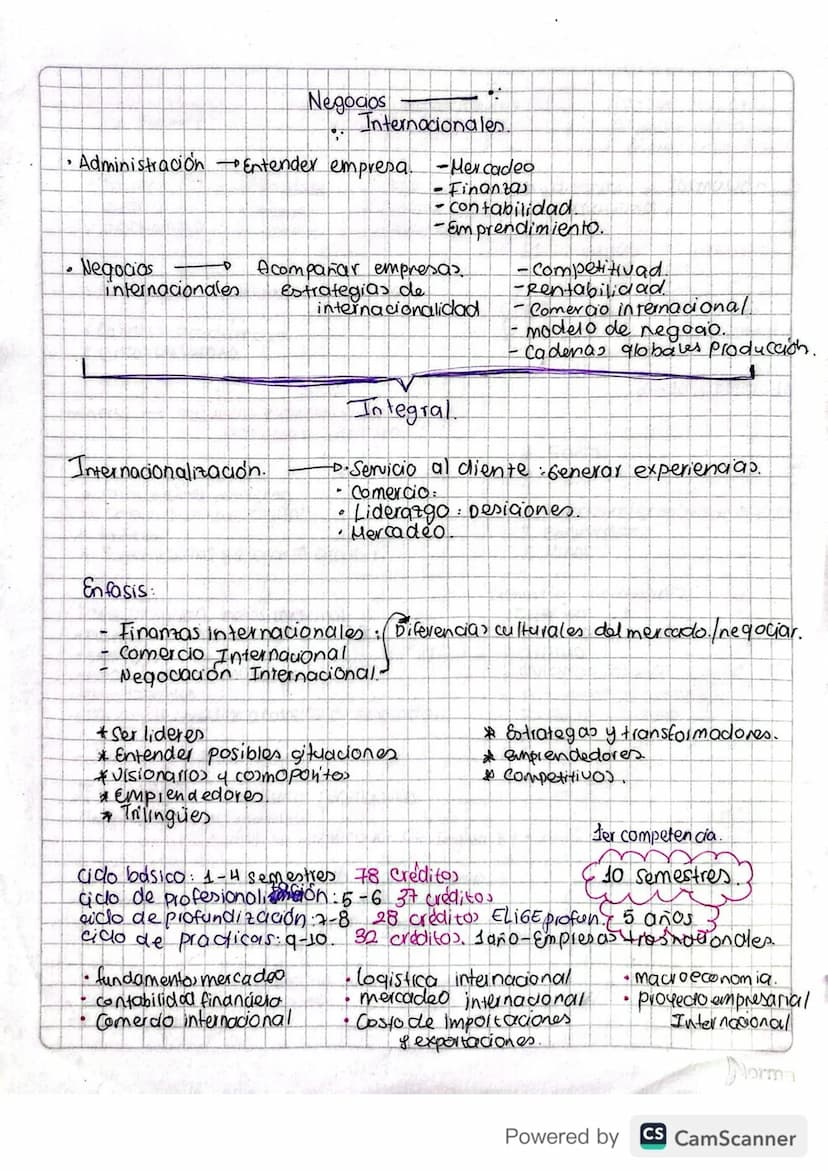 Negocios
Internacionales.
· Administración → Entender empresa. - Mercadeo
- Finanzas
- contabilidad.
- Emprendimiento.
· Negocios → Acompañar empresas. - competitivad.
internacionales estrategias de - Rentabilidad.
internacionalidad - Comercio internacional.
- modelo de negocio.
- cadenas globales producción.
Integral.
Internacionalización. → · Servicio al cliente : Generar experiencias.
· Comercio.
· Liderazgo : Desiciones.
· Mercadeo.
Enfasis:
- Finanzas internacionales : Diferencias culturales del mercado./negociar.
- Comercio Internacional
- Negociación Internacional.
* Ser lideres * Estrategas y transformadores.
* Entender posibles situaciones * emprendedores
* visionarios y cosmopolitas * competitivos.
* Emprendedores
* Trilingües
1er competencia.
ciclo básico: 1-4 semestres 78 créditos 10 semestres.
ciclo de profesionalización: 5-6 37 créditos
ciclo de profundización: 7-8 28 créditos ELIGE profun 5 años
ciclo de practicas: 9-10. 32 créditos. 1año-Empresas trasnacionales.
· fundamentos mercadeo · logistica internacional · macroeconomia.
· contabilidad financiera · mercadeo internacional · proyecto empresarial
· Comercio internacional · Costo de importaciones Internacional
y exportaciones.
Norma
Powered by CS CamScanner